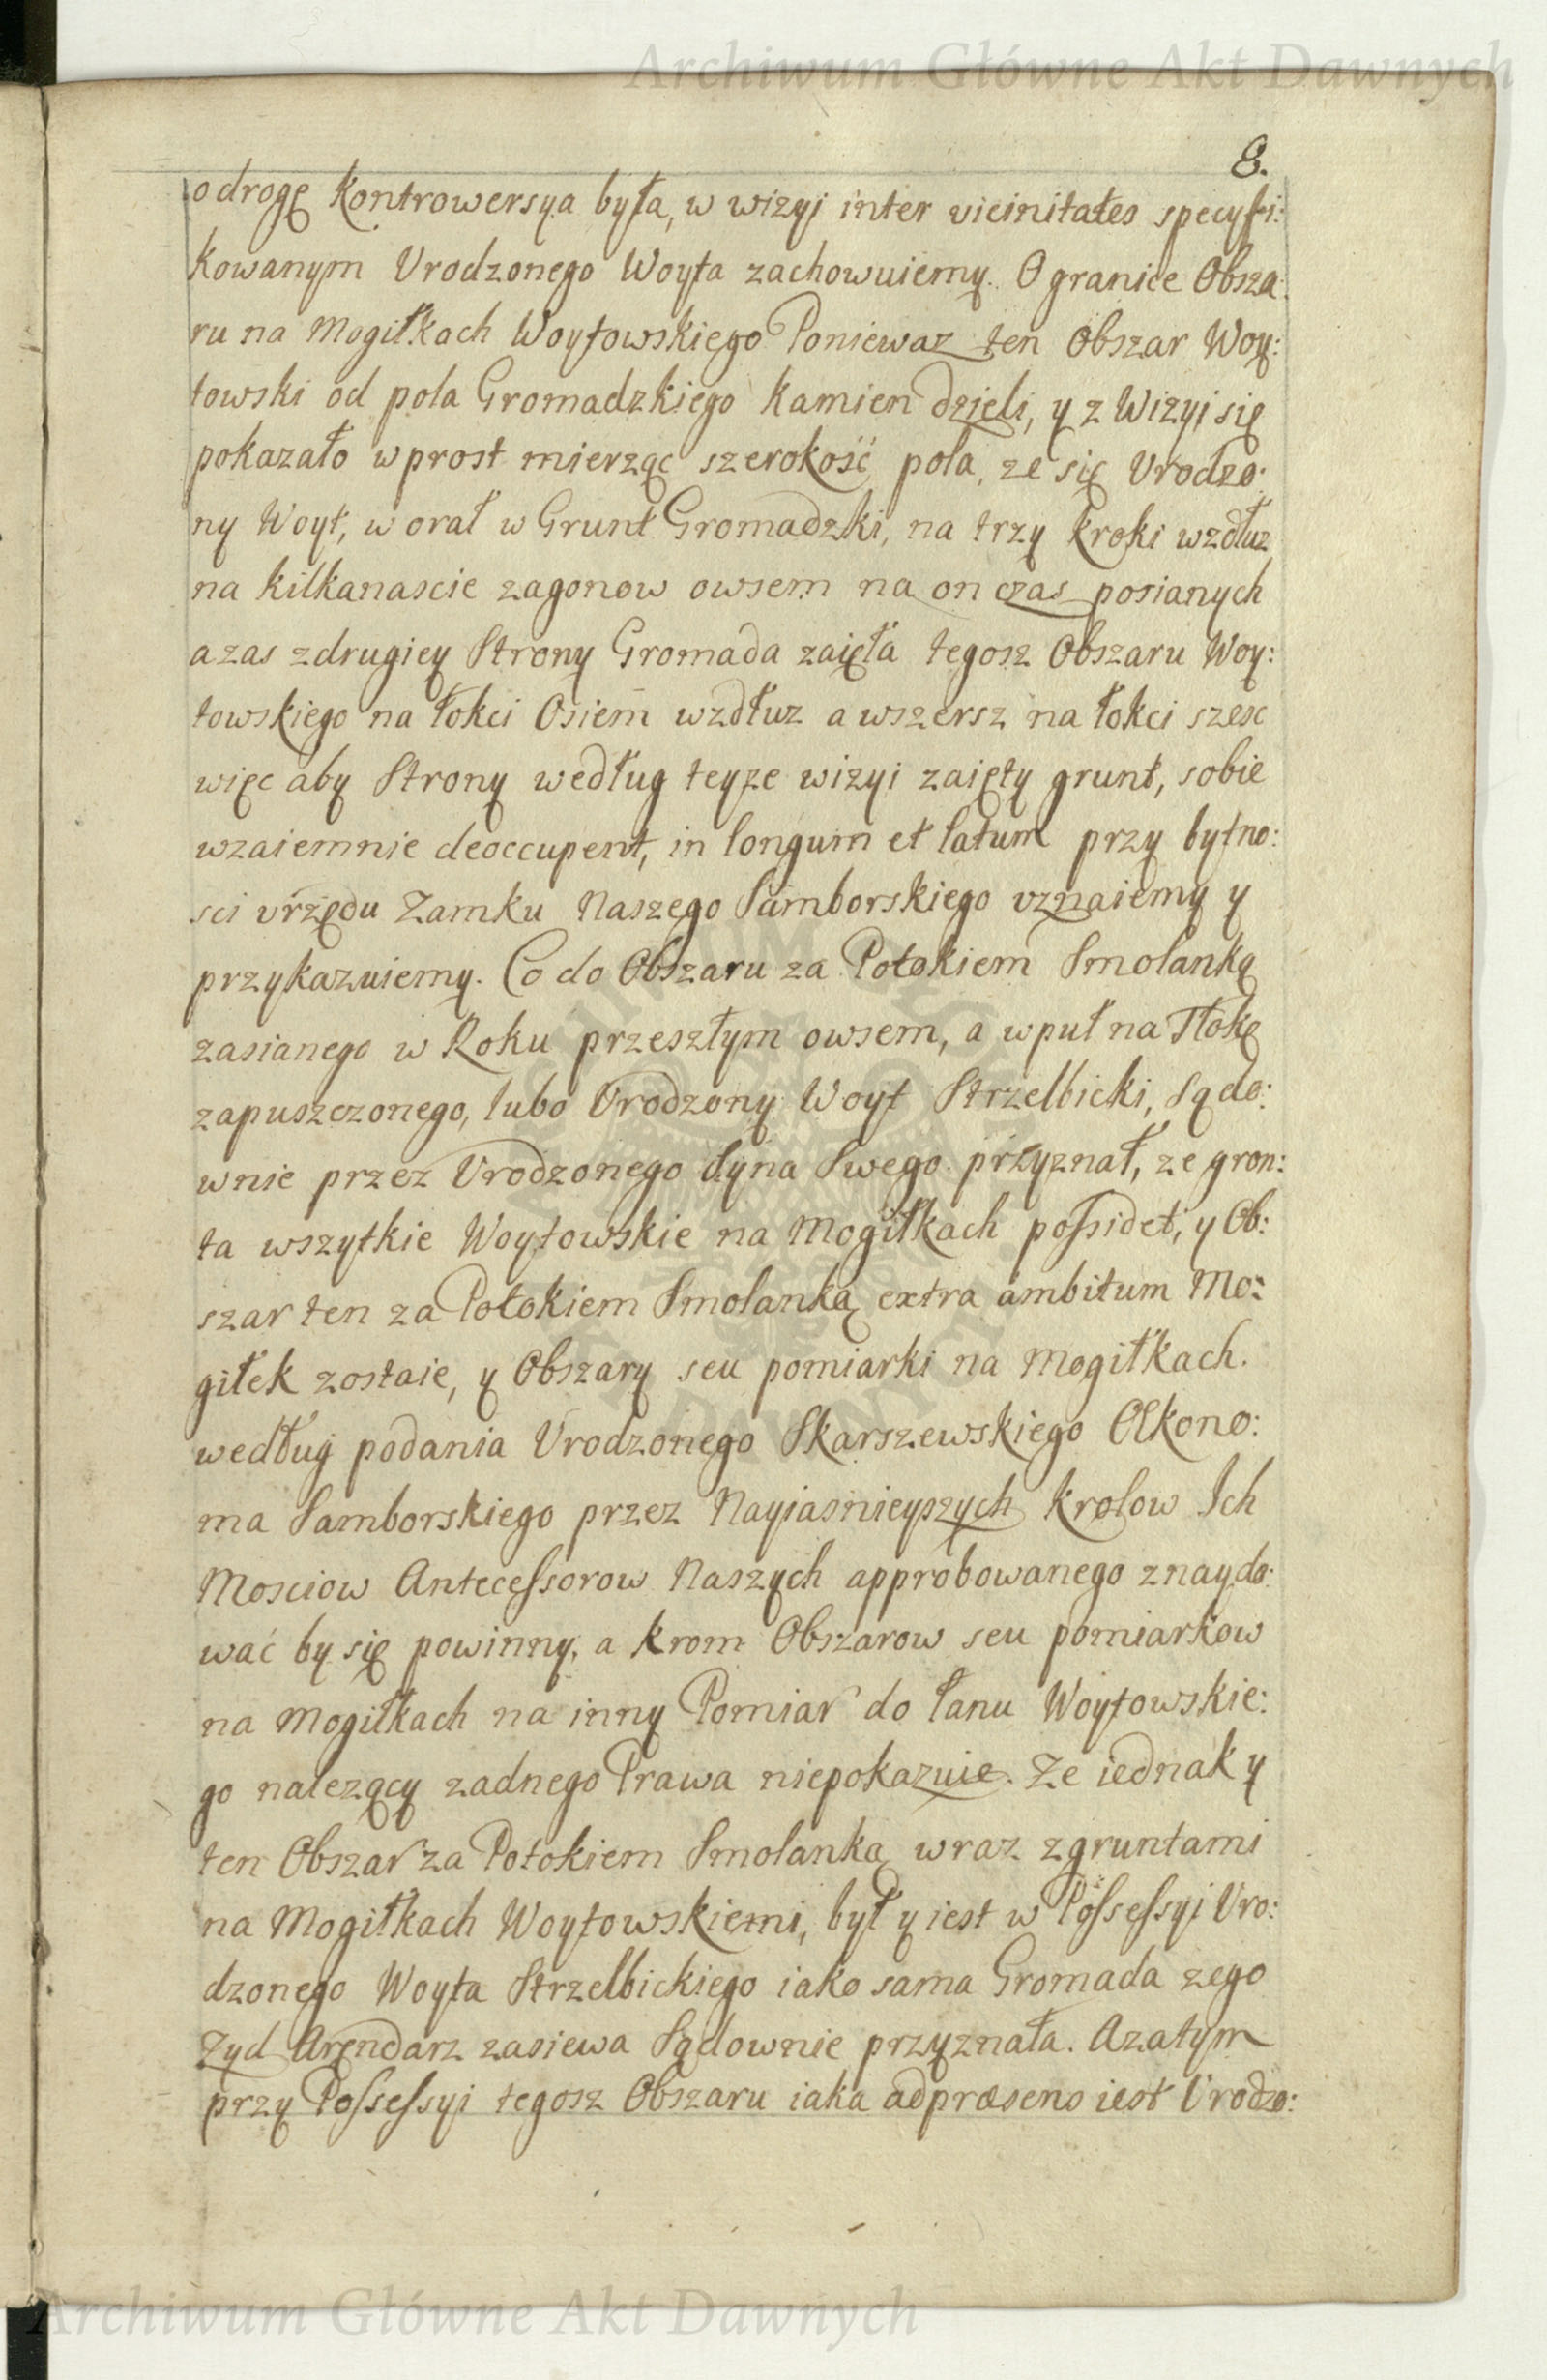 Archiwum Główne Akt Dawnych
8.
o drogę Kontrowersya była, w wizyi inter vicinitates specyfi:
kowanym Vrodzonego Woyta zachowuiemy. O granice Obsza:
ru na Mogiłkach Woytowskiego Poniewaz ten Obszar Woy:
towski od pola Gromadzkiego Kamien dzieli, y z Wizyi się
pokazało wprost mierząc szerokość pola, ze się Vrodzo:
ny Woyt, w orał w Grunt Gromadzki, na trzy kroki wzdłuz
na kilkanascie zagonow owsem na on czas posianych
a zas z drugiey Strony Gromada zaięła tegosz Obszaru Woy:
towskiego na łokci Osiem wzdłuz a wszersz na łokci szesc
więc aby Strony według teyze wizyi zaięty grunt, sobie
wzaiemnie deoccupent, in longum et latum przy bytno:
sci vrzędu Zamku Naszego Samborskiego vznaiemy y
przykazuiemy. Co do Obszaru za Potokiem Smolanką
zasianego w Roku przeszłym owsem, a wpuł na Tłokę
zapuszczonego, lubo Vrodzony Woyt Strzelbicki, Sądo:
wnie przez Vrodzonego Syna Swego przyznał, ze gron:
ta wszytkie Woytowskie na Mogiłkach possidet, y Ob:
szar ten za Potokiem Smolanką extra ambitum Mo:
giłek zostaie, y Obszary seu pomiarki na Mogiłkach.
według podania Vrodzonego Skarszewskiego Œkono:
ma Samborskiego przez Nayiasnieyszych Krolow Ich
Mosciow Antecessorow Naszych approbowanego znaydo:
wać by się powinny, a krom Obszarow seu pomiarkow
na Mogiłkach na inny Pomiar do łanu Woytowskie:
go nalezący zadnego Prawa niepokazuie. Ze iednak y
ten Obszar za Potokiem Smolanką wraz z gruntami
na Mogiłkach Woytowskiemi, był y iest w Possessyi Vro:
dzonego Woyta Strzelbickiego iako sama Gromada zego
Zyd Arendarz zasiewa Sądownie przyznała. Azatym
przy Possessyi tegosz Obszaru iaka ad præsens iest Vrodzo:
Archiwum Główne Akt Dawnych